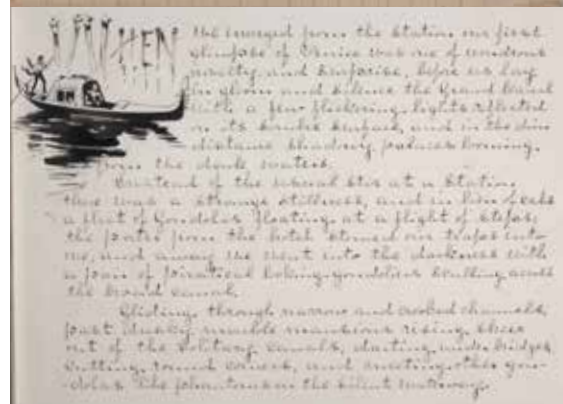 WHEN we emerged from the Station our first
glimpse of Venice was one of wondrous
novelty and surprise, before us lay
in gloom and silence the Grand Canal
with a few flickering lights reflected
on its sombre surface, and in the dim
distance shadowy palaces looming
from the dark waters.
Instead of the usual stir at a Station,
there was a strange stillness, and in lieu of cabs
a fleet of gondolas floating at a flight of steps;
the porter from the hotel stowed our traps into
one, and away we went into the darkness with
a pair of piratical looking gondoliers sculling across
the broad canal.
Gliding through narrow and crooked channels,
past dusky marble mansions rising sheer
out of the solitary canals, darting under bridges
cutting round corners, and meeting other gon-
-dolas like phantoms on the silent waterway.